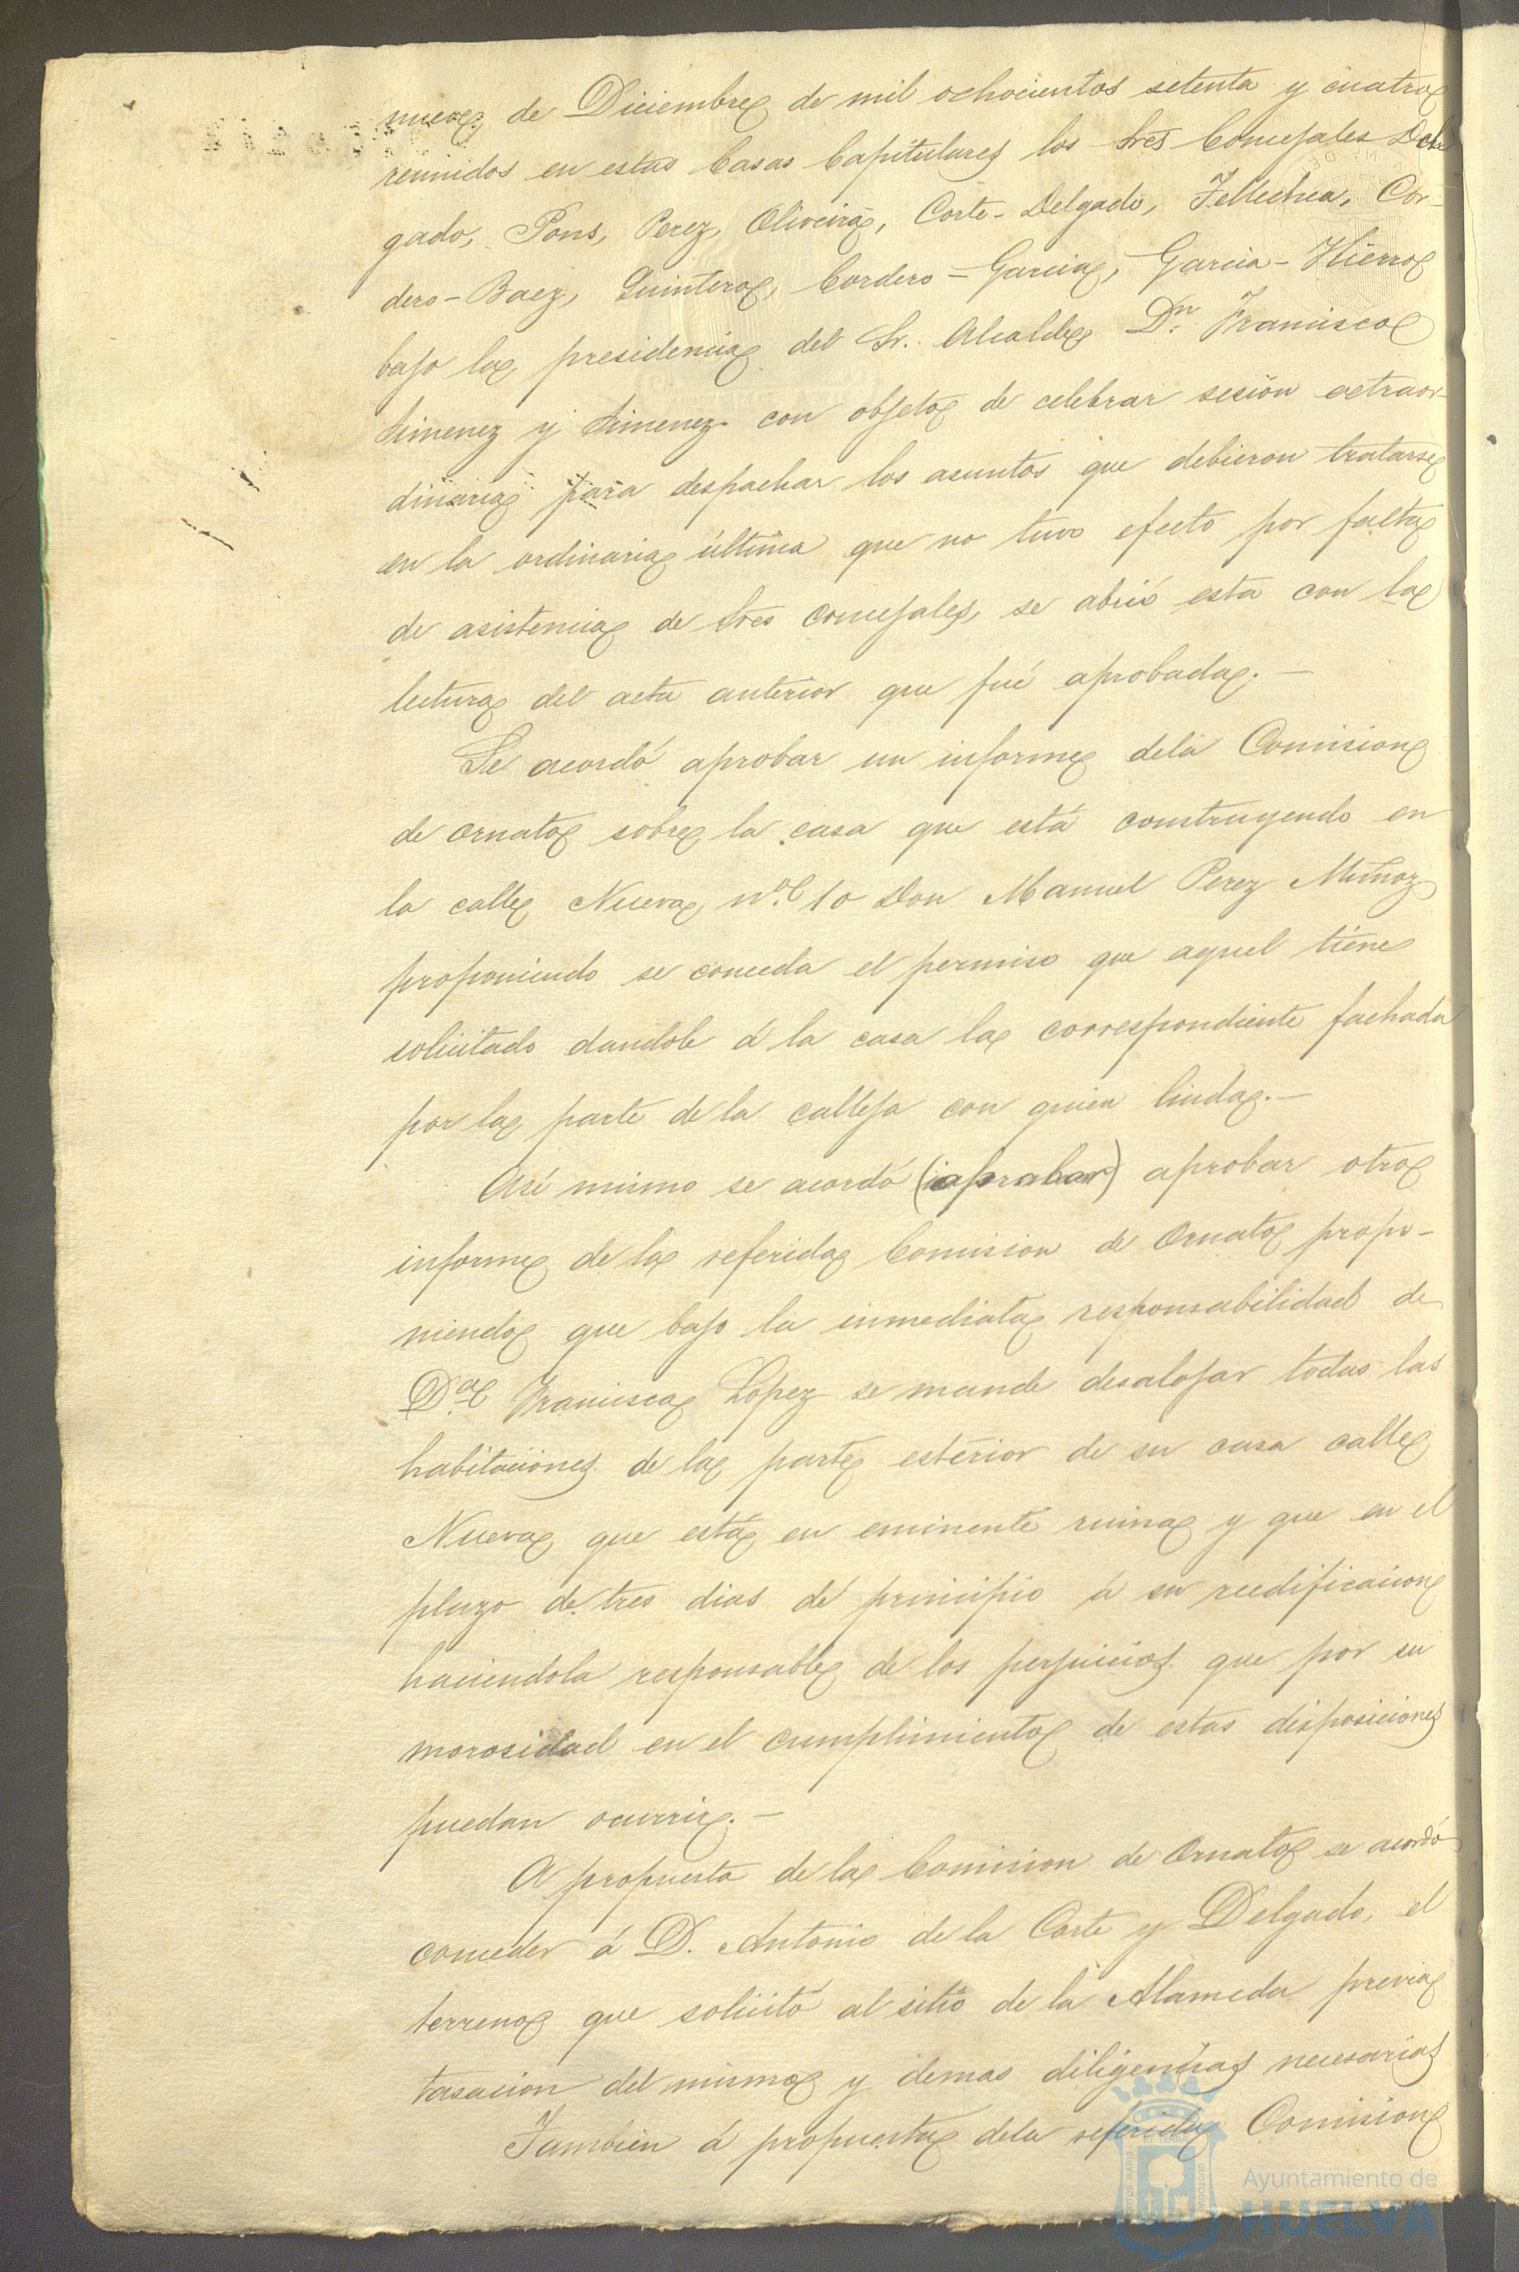 nueve de Diciembre de mil ochocientos setenta y cuatro
reunidos en estas Casas Capitulares los Sres Concejales
gado, Pons, Perez, Oliveira, Corte-Delgado, Tellechea, Cor-
dero-Baez, Quintero, Cordero=Garcia, Garcia-Hierro
bajo la presidencia del Sr. Alcalde Dn. Francisco
Jimenez y Jimenez con objeto de celebrar sesión extraor-
dinaria para despachar los asuntos que debieron tratarse
en la ordinaria última que no tuvo efecto por falta
de asistencia de Sres concejales, se abrió esta con la
lectura del acta anterior que fué aprobada.—
Se acordó aprobar un informe dela Comision
de ornato sobre la casa que está construyendo en
la calle Nueva no. 10 Don Manuel Perez Muñoz
proponiendo se conceda el permiso que aquel tiene
solicitado dandole á la casa la correspondiente fachada
por la parte de la calleja con quien linda.—
Así mismo se acordó (aprobar) aprobar otro
informe de la referida Comision de Ornato propo-
niendo que bajo la inmediata responsabilidad de
Da. Francisca López se mande desalojar todas las
habitaciones de la parte esterior de su casa calle
Nueva que está en eminente ruina y que en el
plazo de tres dias dé principio á su reedificacion
haciendola responsable de los perjuicios que por su
morosidad en el cumplimiento de estas disposiciones
puedan ocurrir.—
A propuesta de la Comision de Ornato se acordó
conceder á D. Antonio de la Corte y Delgado, el
terreno que solicitó al sitio de la Alameda previa
tasacion del mismo y demas diligencias necesarias
Tambien á propuesta dela referida Comision
Ayuntamiento de
HUELVA